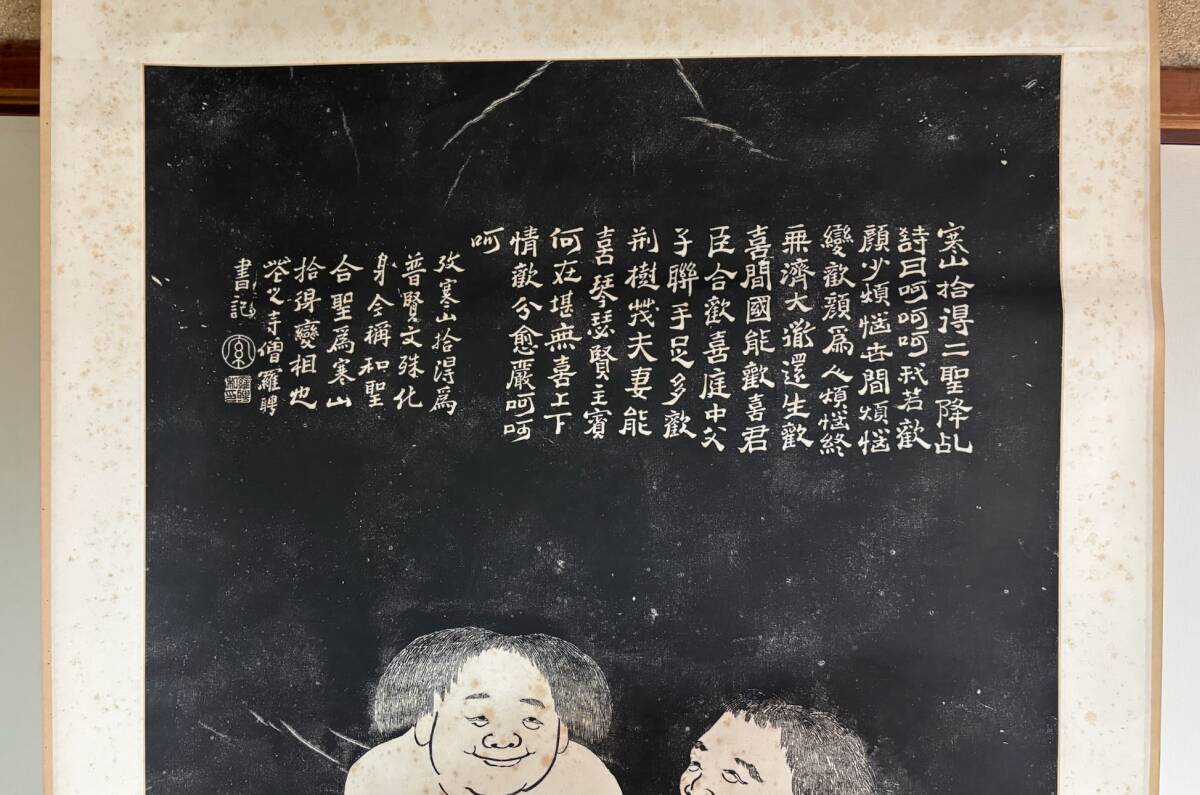 寒山拾得二聖降乩
詩曰呵呵呵我若歡
顏少煩惱世間煩惱
變歡顏爲人煩惱終
無濟大道還生歡
喜間國能歡喜君
臣合歡喜庭中父
子聯手足多歡
荆樹茂夫妻能
喜琴瑟賢主賓
何在堪無喜上下
情歡分愈嚴呵呵
呵
攷寒山拾得爲
普賢文殊化
身今稱和聖
合聖爲寒山
拾得變相也
花之寺僧羅聘
書記